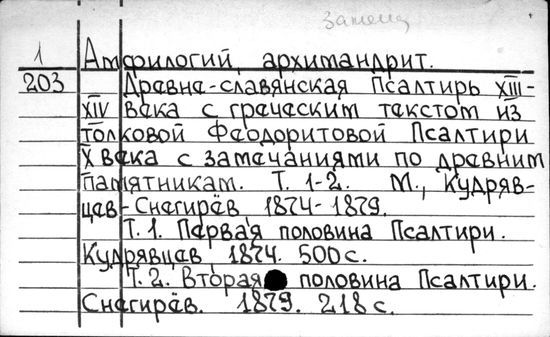 Замещ
1 Амфилогий, архимандрит.
203 Древне-славянская Псалтирь XIII-
XIV века с греческим текстом из
толковой Феодоритовой Псалтири
X века с замечаниями по древним
памятникам. Т. 1-2. М., Кудряв-
цев-Снегирёв 1874-1879.
Т. 1. Первая половина Псалтири.
Кудрявцев, 1874. 500 с.
Т. 2. Вторая половина Псалтири.
Снегирёв. 1879. 218 с.